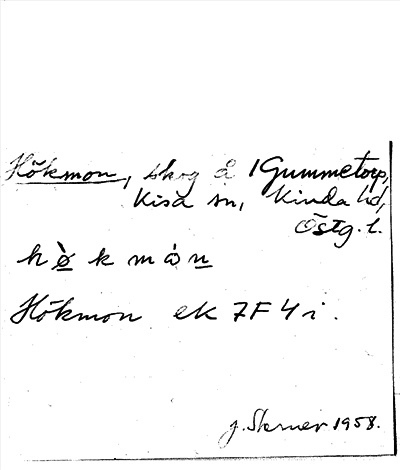 Hökmon, skog å 1 Gummetorp,
Kisa sn, Kinda hd,
Östg. l.
h ö k m ó n
Hökmon ek 7F4i.
J. 1958.